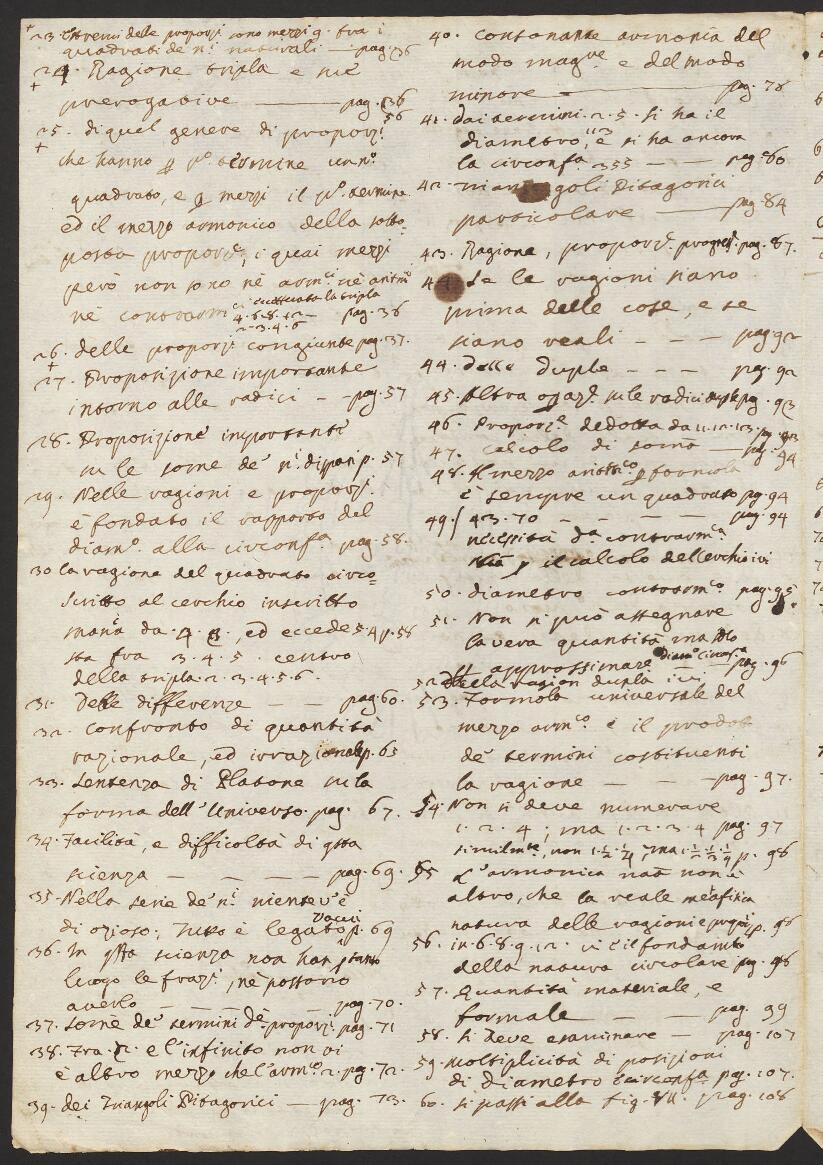 23. Estremi delle proporz.i sono mezzi g. tra i
quadrati de' n.i naturali — pag. 36
24. Ragione tripla e sue
prerogative — pag. 36
25. di quel genere di proporz.i 56
che hanno p p.o termine un n.o
quadrato, e p mezzi il p.o termine
ed il mezzo armonico della sotto
posta proporz.e, i quai mezzi
però non sono nè arm.ci nè aritm.i
nè contrarm.ci eccettuata la tripla
4.6.8.12 — pag. 36
2.3.4.6
26. delle proporz.i congiunte pag. 37.
27. Proposizione importante
intorno alle radici — pag. 57
28. Proposizione importante
su le some de' n.i dispari p. 57
29. Nelle ragioni e proporz.i
è fondato il rapporto del
diam.o alla circonf.a pag. 58.
30 la ragione del quadrato circo
scritto al cerchio inscritto
manca da 4 3. ed eccede 5.4 p. 58
sta fra 3.4.5. centro
della tripla 2.3.4.5.6.
31. Delle differenze — — pag. 60.
32. Confronto di quantità
razionale, ed irrazionale p. 63
33. Sentenza di Platone su la
forma dell'Universo. pag. 67.
34. Facilità, e difficoltà di qsta
scienza — — — — pag. 69.
35. Nella serie de' n.i niente v'è
di ozioso; Tutto è legato p. 69
36. In qsta scienza non han
luogo le fraz.i, nè possono
averlo — — — pag. 70.
37. Some de' termini de' proporz.i pag. 71
38. Fra 2. e l'infinito non vi
è altro mezzo che l'arm.o 2. pag. 72.
39. dei Triangoli Pitagorici — pag. 73.
40. Consonante armonia del
modo mag.re e del modo
minore — pag. 78
41. dai termini 2.5. si ha il
diametro 113, e si ha ancora
la circonf.a 355 — — pag. 80
42. Triangoli Pitagorici
particolare — pag. 84
43. Ragione, proporz.e, progres.e pag. 87.
44. Se le ragioni siano
prima delle cose, e se
siano reali — — — pag. 92
44. delle duple — — — pag. 92
45. Altra opaz.e su le radici duple pag. 93
46. Proporz.e dedotta da 11.12.13 pag. 93
47. Calcolo di soma — pag. 94
48. Il mezzo aritm.o p formola
è sempre un quadrato pag. 94
49. 43.70 — — — — pag. 94
necessità d.a contrarm.a
p il calcolo del cerchio ivi
50. diametro contrarm.o pag. 95
51. Non si può assegnare
la vera quantità ma solo
approssimare diam.o circonf.a pag. 96
52. della ragion dupla ivi
53. Formola universale del
mezzo arm.o è il prodot
de' termini costituenti
la ragione — — pag. 97.
54. Non si deve numerare
1.2.4; ma 1.2.3.4 pag. 97
similmte, non 1.1/2.1/4, ma 1.1/2.1/3.1/4 p. 98
55 L'armonica non è
altro, che la reale
natura delle ragioni e p. 98
56. in 6.8.9.12. vi è il fondamto
della natura circolare pag. 98
57. Quantità materiale, e
formale — — pag. 99
58. si deve esaminare — pag. 107
59. Moltiplicità di posizioni
di diametro e circonf.a pag. 107.
60. si passi alla fig. VII. pag. 108